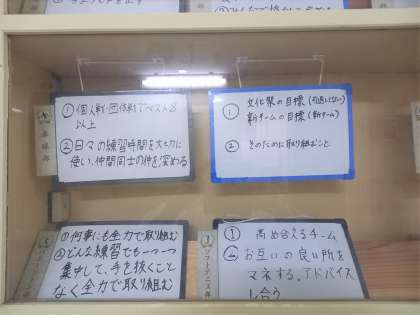 ① 個人戦・団体戦でベスト8
以上
② 日々の練習時間を大切に
使い、仲間同士の仲を深める
① 文化祭の目標(引退してない)
新チームの目標(新チーム)
② そのために取り組むこと
① 何事にも全力で取り組む
② どんな練習でも一つ一つ
集中して、手を抜くこと
なく全力で取り組む
ソフトテニス部
① 高め合えるチーム
② お互いの良い所を
マネする。アドバイス
し合う